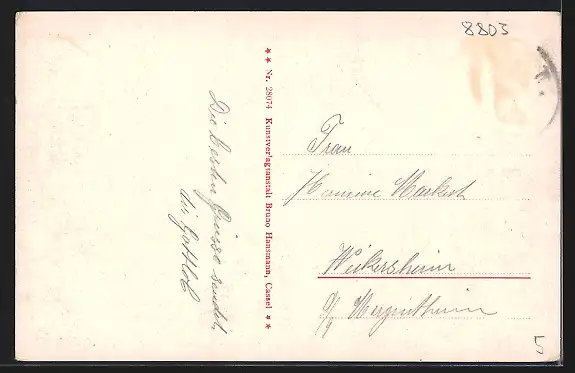 8803
Die besten Grüsse sendet
dir Gottlob
** Nr. 28074 Kunstverlagtanstalt Bruno Hansmann, Cassel **
Frau
Hermine Markert
Weikersheim
o/g Mergentheim
5